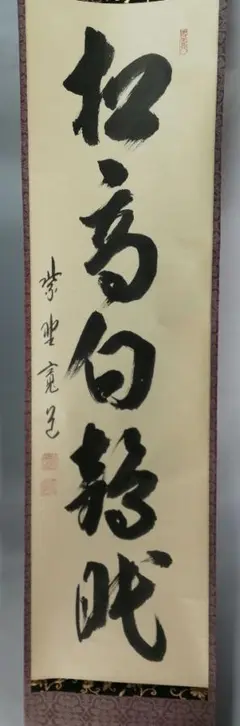 松高白鶴眠
紫野寛道